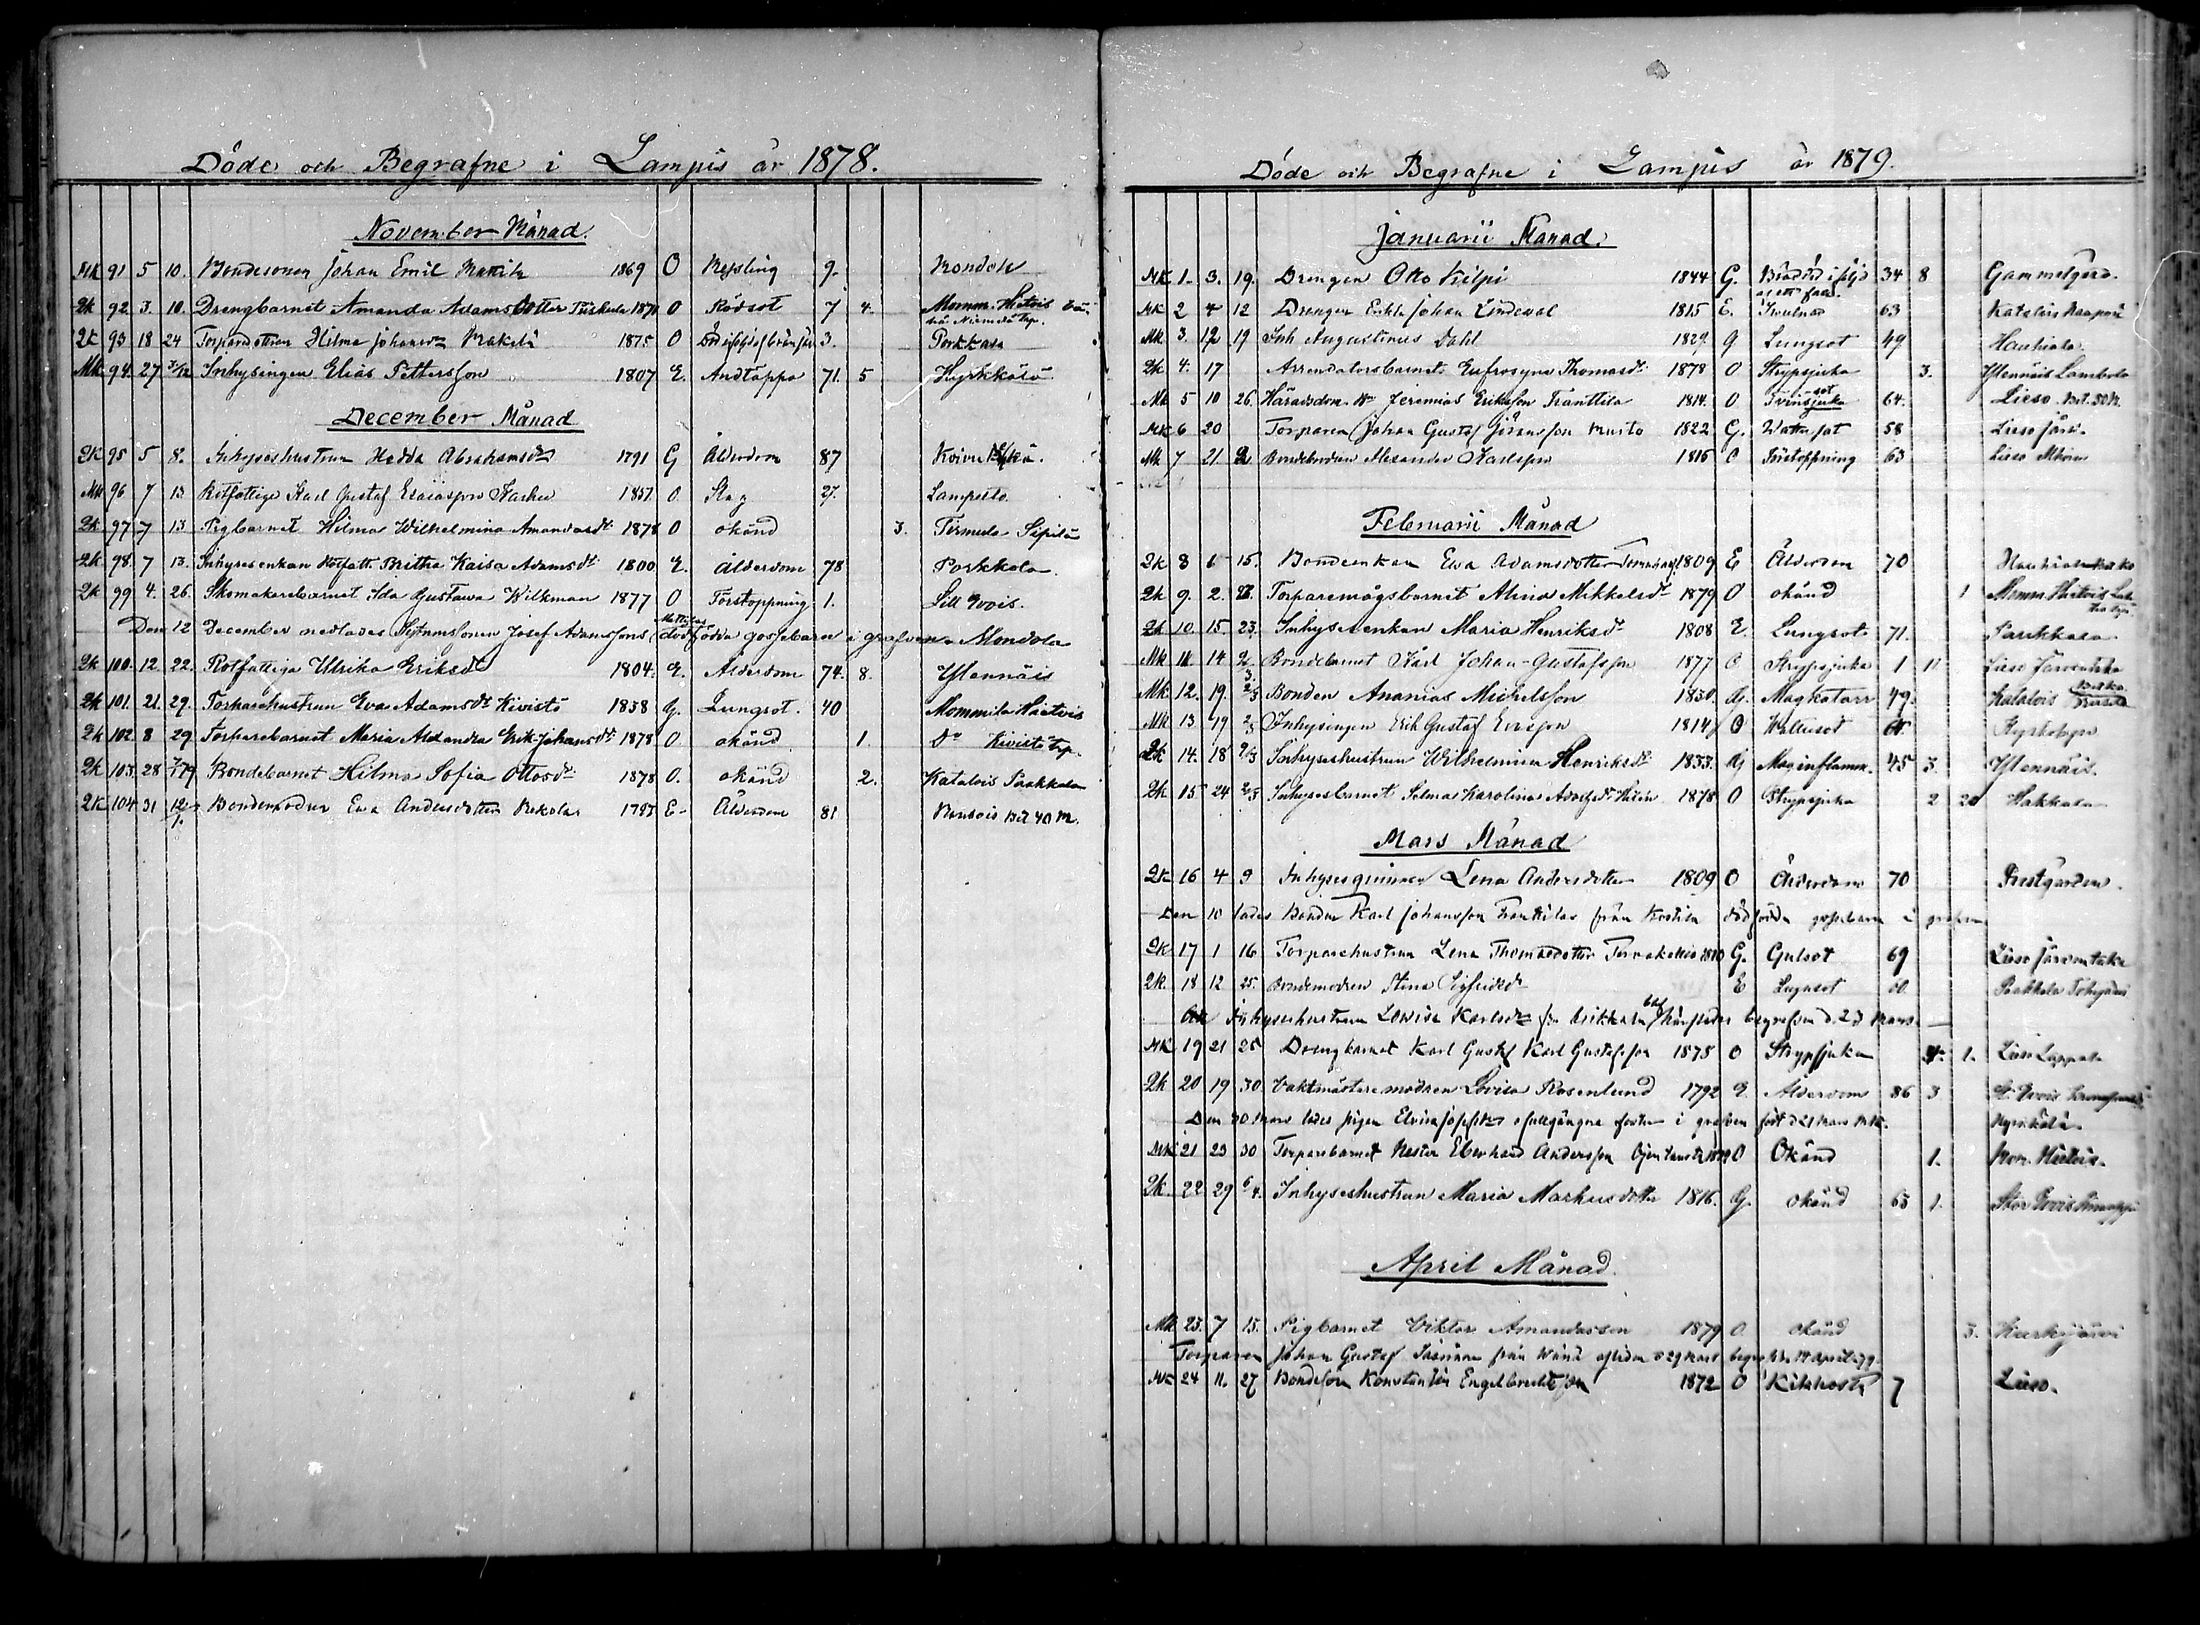 Döde och Begrafne i Lampis år 1878.
November Månad.
Mk 91 5 10. Bondesonen Johan Emil Mattila 1869 O Messling 9. Kondola
Qk 92 3. 10. Drengbarnet Amanda Adamsdotter 1871 O Rödsot 7 4. Momm. Hietois
Qk 93 18 24 Hilma Johansd:r Mäkelä 1875 O 3. Porkkala
Mk 94. 27 1/12 Inhysingen Elias Pettersson 1807 E. Andtäppa 71. 5 Hyrkkälä
December Månad
Qk 95 5 8. Inhyseshustrun Hedda Abrahamsd:r 1791 G Ålderdom 87
Mk 96 7 13 Rotfattige Karl Gustaf Esaiasson 1851 O. Slag 27. Lampisto
Qk 97 7 13. Pigbarnet Hilma Wilhelmina Amandasd:r 1878 O okänd 3. Tirmula Sipilä
Qk 98. 7 13. Inhysesenkan Rotfatt. Britha Kaisa Adamsd:r 1800 E. Ålderdom 78 Porkkala
Qk 99 4. 26. Skomakarebarnet Ida Gustava Wilkman 1877 O Förstoppning 1. Lill Evois.
Den 12 December nedlades Josef Adamssons dödfödda gossebarn i grafven Mondola
Qk 100. 12. 22. Rotfattiga Ulrika Eriksd:r 1804. E. Ålderdom 74. 8. Ylennäis
Qk 101. 21. 29. Torparehustrun Eva Adamsd:r Kivistö 1838 G. Lungsot. 40 Mommila Hietois
Qk 102. 8 29 Torparebarnet Maria Alexandra Erik-Johansd:r 1878 O. okänd 1. D:o Kivistö tp.
Qk 103. 28 7/1 79 Bondebarnet Hilma Sofia Ottosd:r 1878 O. okänd 2. Katalois Paakkala
Qk 104 31 12/1. Bondemodren Eva Andersdotter Rekola 1797 E. Ålderdom 81
Döde och Begrafne i Lampis år 1879.
Januarii Månad.
Mk 1. 3. 19. Drengen Otto Kilpi 1844 G. 34 8 Gammelgård.
Mk 2 4 12 Drengen Johan Lindevall 1815 E. 63 Katalois
Mk 3. 12 19 Inh Augustinus Dahl 1829. G Lungsot 49 Hauhiala
Qk 4. 17 Arrendatorsbarnet Eufrosyna Thomasd:r 1878 O Strypsjuka 3. Ylennäis
Mk 5 10 26. Häradsdom. Jeremias Eriksson Franttila 1814. O 64. Lieso
Mk 6 20 Torparen Johan Gustaf Göransson 1822 G. Wattusot 58 Lieso
Mk 7 21 Alexander Karlsson 1815 O Förstoppning 63 Lieso
Februarii Månad
Qk 8 6 15. Bondeenkan Eva Adamsdotter 1809 E Ålderdom 70
Qk 9. 2. Torparemågsbarnet Alina Mikkelsd:r 1879 O okänd 1 Momm. Hietois
Qk 10. 15. 23. Inhysesenkan Maria Henriksd:r 1808 E. Lungsot 71. Porkkala
Mk 11 14 2/3 Bondebarnet Karl Johan Gustafsson 1877 O Strypsjuka 1 11 Lieso Järventaka
Mk 12. 19. 2/3 Bonden Ananias Michelsson 1830. G. Magkatarr 49. Katalois
Mk 13 19 2/3 Inhysingen Erik Gustaf Ersson 1814 O Wattusot
Qk 14. 18 2/3 Inhyseshustrun Wilhelmina Henriksd:r 1833. G Maginflamm. 45 3. Ylennäis.
Qk 15 24 2/3 Inhysesbarnet Selma Karolina Adolfsd:r 1878 O Strypsjuka 2 20 Hakkala
Mars Månad
Qk 16 4 9 Inhysesqvinnan Lena Andersdotter 1809 O Ålderdom 70 Prestgården.
Den 10 lades Bonden Karl Johansson från dödfödda gossebarn i grafven
Qk 17 1 16 Torparehustrun Lena Thomasdotter 1810 G. Gulsot 69 Lieso Järventaka
Qk. 18 12 25. Bondemodren Stina Sigfridsd:r E Lugnsot
Inhyseshustrun Lovisa Karlsd:r härstädes begrafven d. 23 Mars
Mk 19 21 25 Drengbarnet Karl Gustaf Karl Gustafsson 1878 O Strypsjuka 1. Lieso
Qk 20 19 30 Vaktmästaremodren Lovisa Rosenlund 1792 E. Ålderdom 86 3
Den 30 Mars lades pigan ofullgångna foster i grafven född d 21 Mars
Mk 21 23 30 Torparebarnet Nestor Eberhard Andersson O Okänd 1. Mom. Hietois.
Qk. 22 29 6/4. Inhyseshustrun Maria Markusdotter 1816. G. okänd 63 1. Stor Evois
April Månad
Mk 23. 7 13. Pigbarnet Viktor Amandasson 1879 O. okänd 3. Kurkijärvi
Torparen Johan Gustaf från afliden d 29 Mars April 79.
Mk 24 11. 27 Bondeson Konstantin Engelbrektsson 1872 O Kikhosta 7 Lieso.